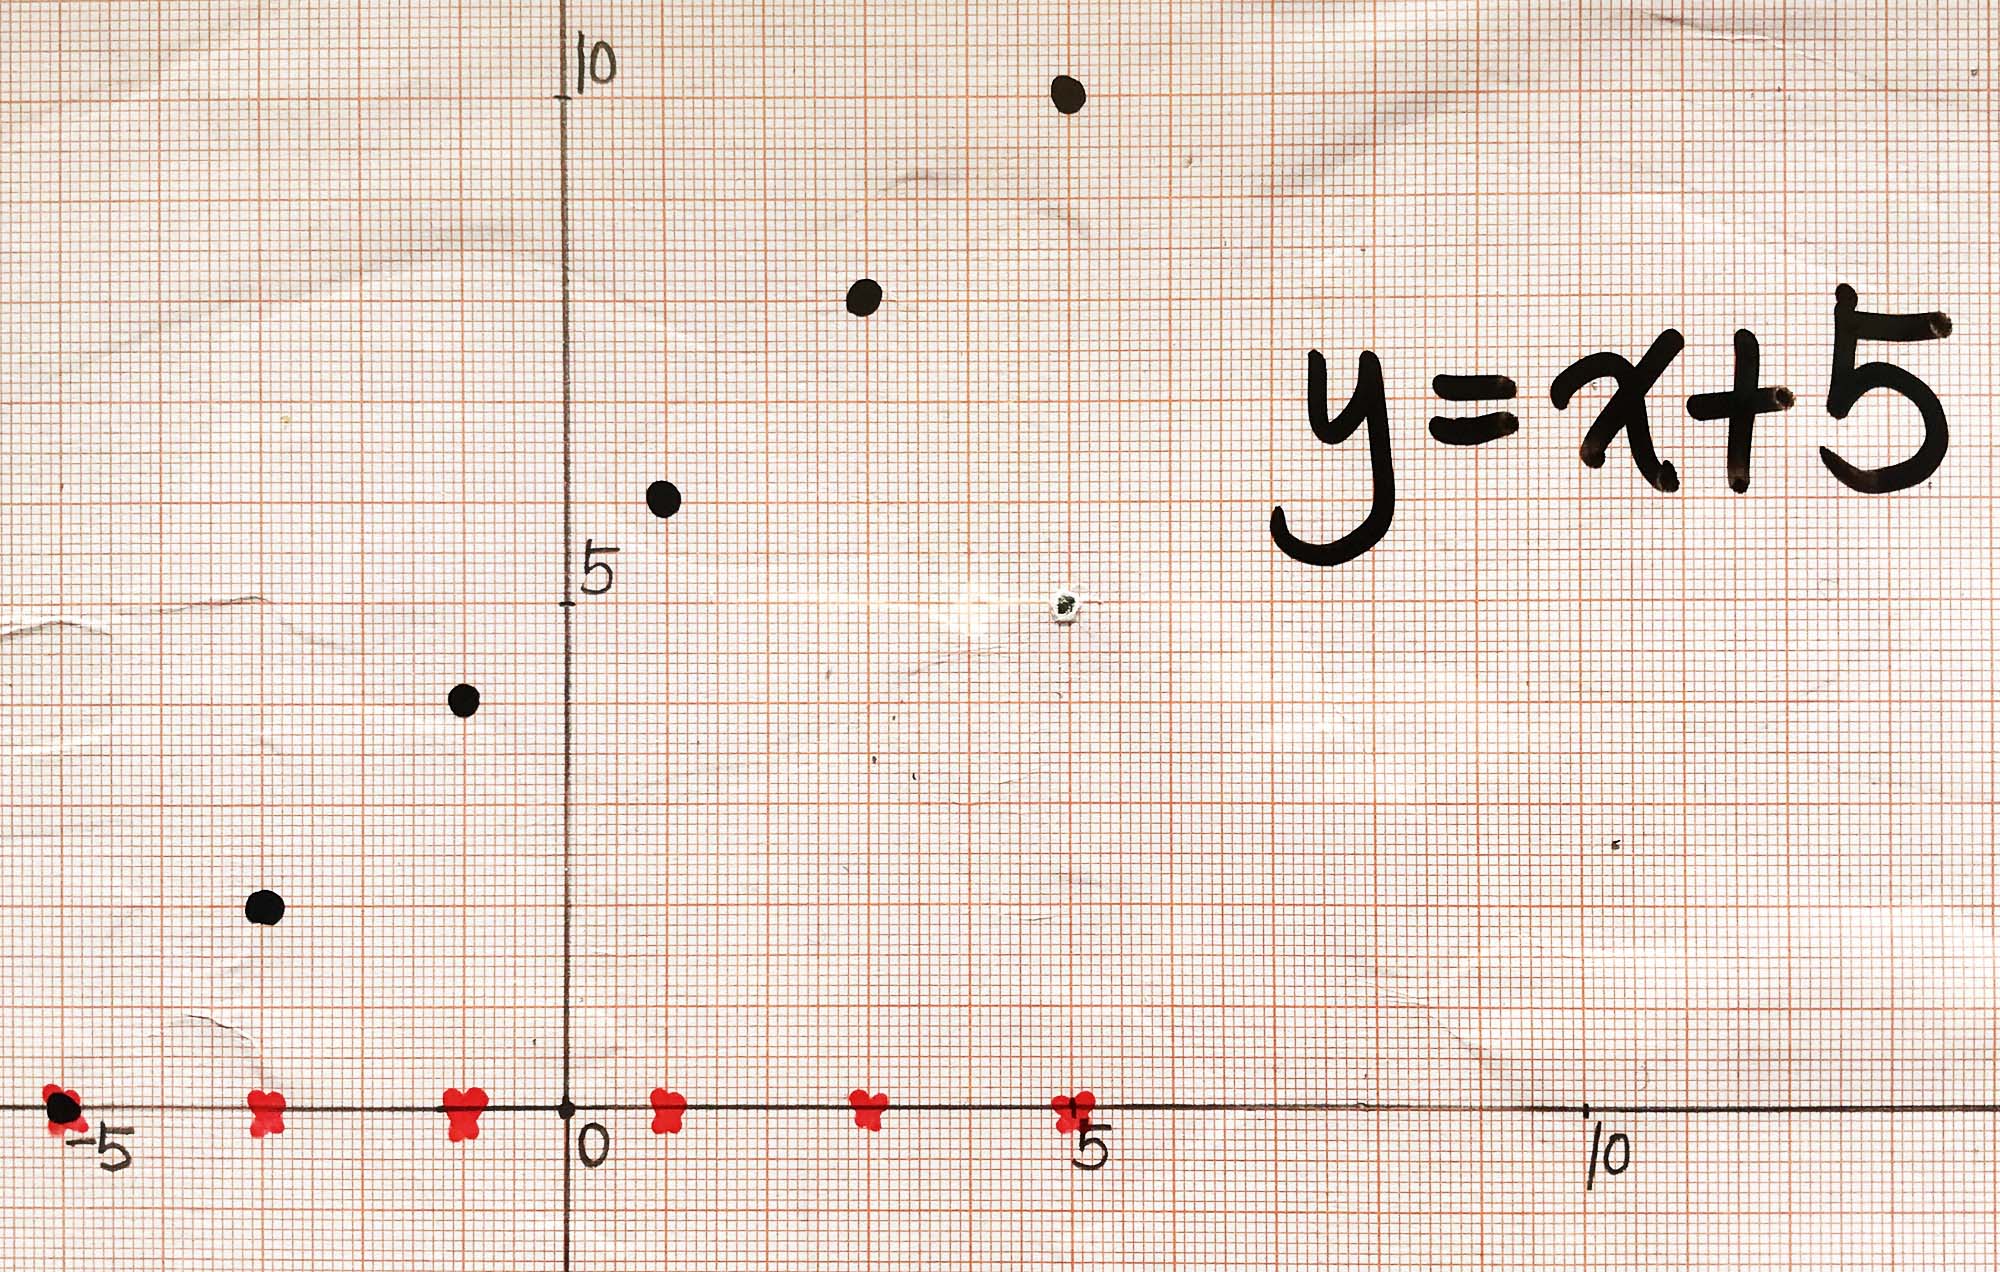 10
y=x+5
5
-5 0 5 10